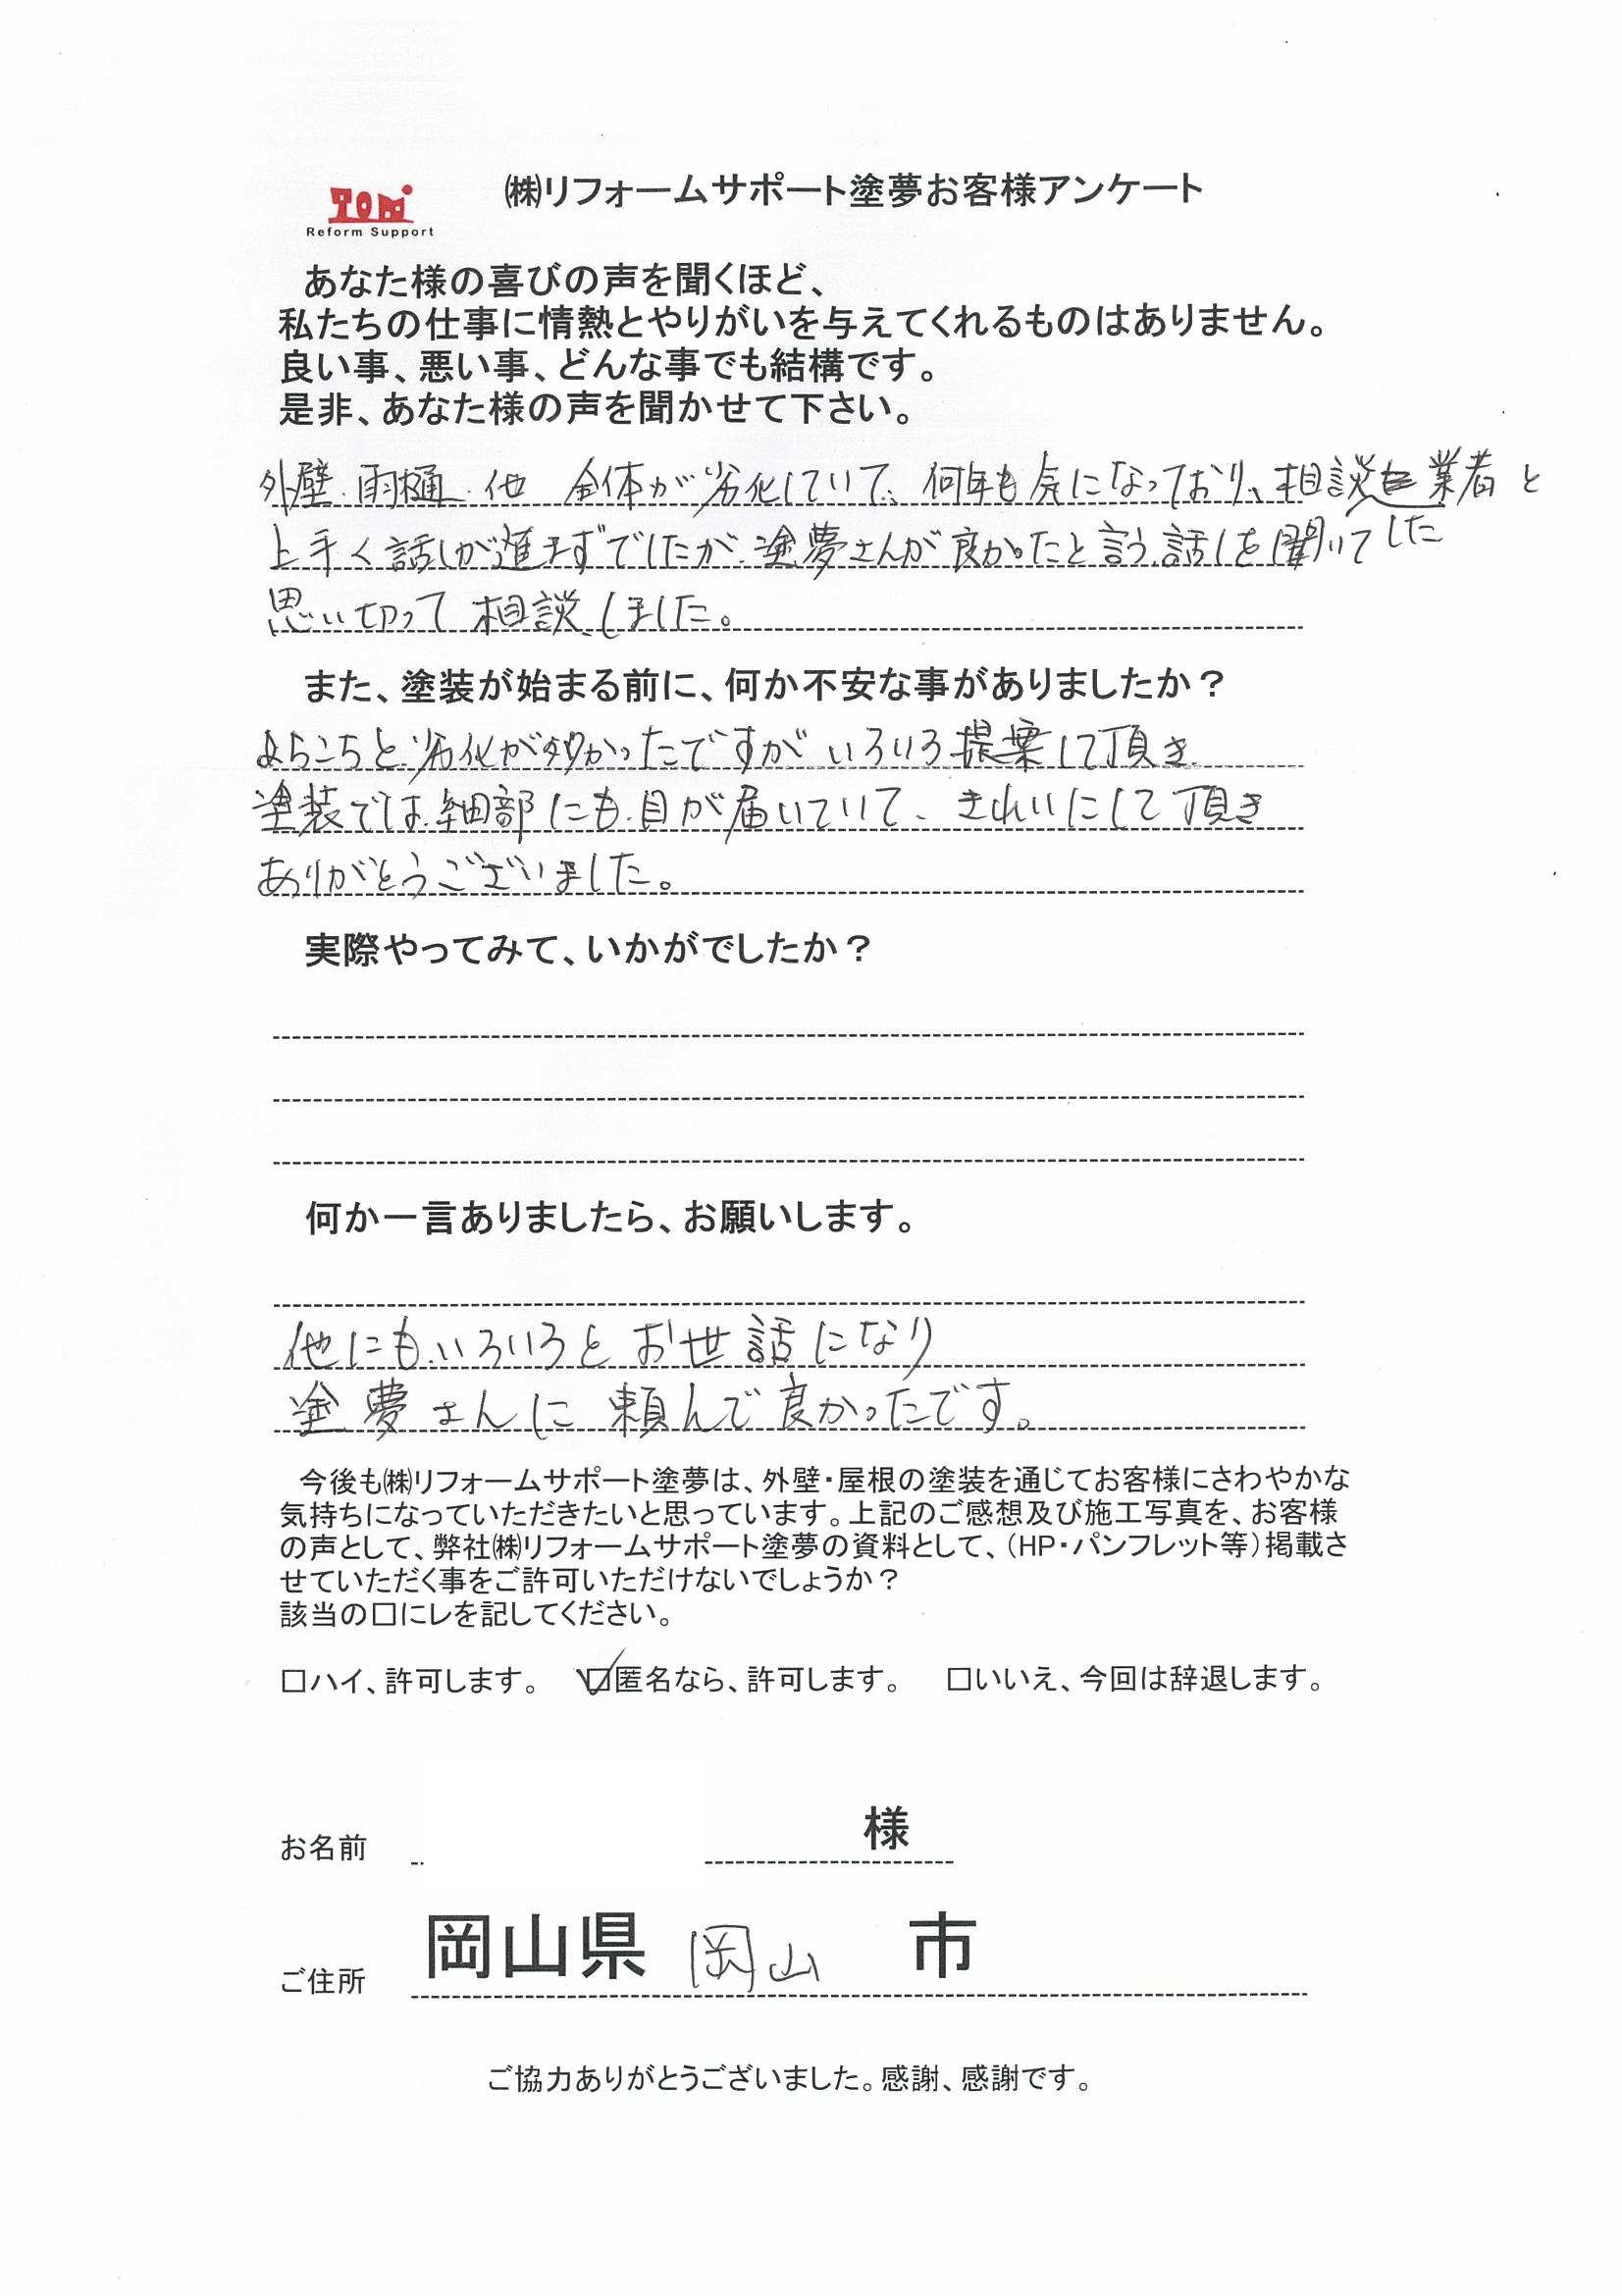 TOM
Reform Support
㈱リフォームサポート塗夢お客様アンケート
あなた様の喜びの声を聞くほど、
私たちの仕事に情熱とやりがいを与えてくれるものはありません。
良い事、悪い事、どんな事でも結構です。
是非、あなた様の声を聞かせて下さい。
外壁、雨樋、他 全体が劣化していて、何年も気になっており、相談した業者と
上手く話しが進まずでしたが、塗夢さんが良かったと言う話しを聞いて
思い切って相談しました。
また、塗装が始まる前に、何か不安な事がありましたか?
あちこちと劣化が多かったですがいろいろ提案して頂き
塗装では、細部にも目が届いていて、きれいにして頂き
ありがとうございました。
実際やってみて、いかがでしたか?
何か一言ありましたら、お願いします。
他にもいろいろとお世話になり
塗夢さんに頼んで良かったです。
今後も㈱リフォームサポート塗夢は、外壁・屋根の塗装を通じてお客様にさわやかな
気持ちになっていただきたいと思っています。上記のご感想及び施工写真を、お客様
の声として、弊社㈱リフォームサポート塗夢の資料として、(HP・パンフレット等)掲載さ
せていただく事をご許可いただけないでしょうか?
該当の□にレを記してください。
□ハイ、許可します。 ☑匿名なら、許可します。 □いいえ、今回は辞退します。
お名前 様
ご住所 岡山県 岡山 市
ご協力ありがとうございました。感謝、感謝です。